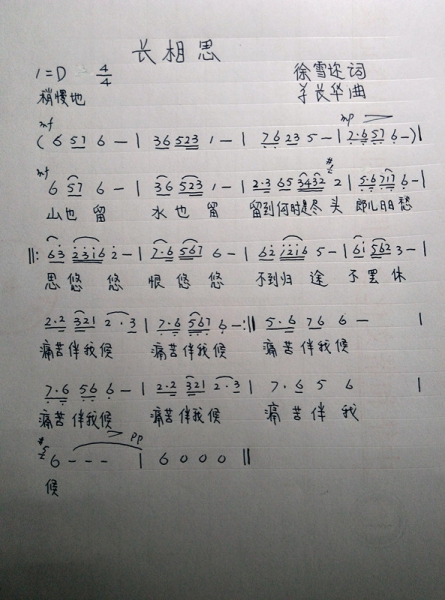 长相思
1=D 4/4 徐雪 词
稍慢地 长华曲
mf mp
( 6 57 6 - | 36 523 1 - | 76 23 5 - | 7·6 57 6 - ) |
mf
6 57 6 - | 36 523 1 - | 2·3 65 3432 2 | 5·6 717 6 - |
山也留 水也留 留到何时是尽头 郎儿日日愁
||: 63 2316 2 - | 7·6 567 6 - | 62 1216 5 - | 61 562 3 - |
思悠悠 恨悠悠 不到归途 不罢休
2·2 321 2·3 | 7·6 567 6 - :|| 5·6 76 6 - |
痛苦伴我候 痛苦伴我候 痛苦伴我候
7·6 56 6 - | 2·2 321 2·3 | 7·6 5 6 |
痛苦伴我候 痛苦伴我候 痛苦伴我
pp
6 - - - | 6 0 0 0 ||
候